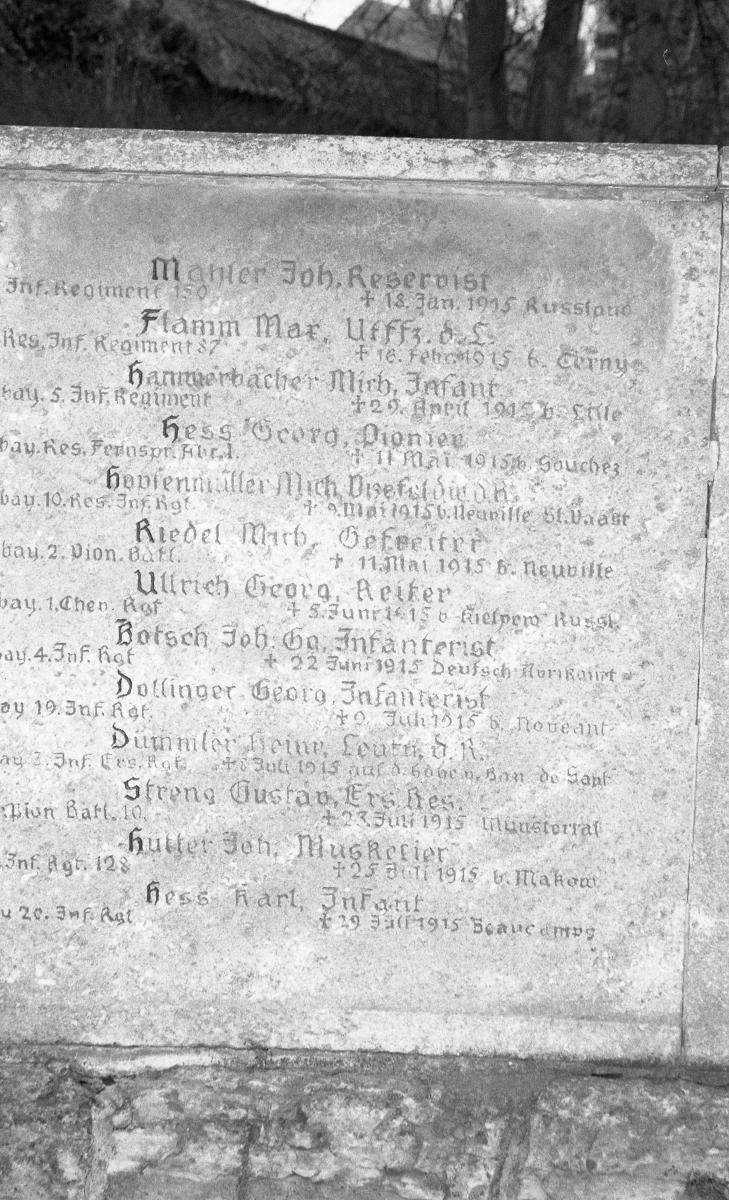 Mahler Joh. Reservist
Inf. Regiment 150 † 18. Jan. 1915 Russland
Flamm Max, Utffz. d. L.
Res. Inf. Regiment 87 † 18. Febr. 1915 b. Cerny
Hammerbacher Mich, Infant
bay. 5. Inf. Regiment † 29. April 1915 b. Lille
Hess Georg, Pionier
bay. Res. Fernspr. Abt. 1. † 11 Mai 1915 b. Souchez
Hopfenmüller Mich, Vizefeldw. d. R.
bay. 10. Res. Inf. Rgt. † 9. Mai 1915 b. Neuville St. Vaast
Riedel Mich, Gefreiter
bay. 2. Pion. Batl. † 11. Mai 1915 b. Neuville
Ullrich Georg, Reiter
bay. 1. Chev. Rgt † 5. Juni 1915 b Russl.
Botsch Joh. Gg. Infanterist
bay. 4. Inf. Rgt † 22 Juni 1915 Deutsch Avrikourt
Dollinger Georg, Infanterist
bay 19. Inf. Rgt. † 9. Juli 1915 b. Noveant
Dümmler Heinr, Leutn. d. R.
Inf. Ers. Rgt. † Juli 1915 auf d. Höhe v. Ban de Sapt
Streng Gustav, Ers. Res.
Pion Batl. 10. † 23. Juli 1915 Münstertal
Hutter Joh, Musketier
Inf. Rgt. 128 † 25 Juli 1915 b. Makow
Hess Karl, Infant
20. Inf. Rgt † 29 Juli 1915 Beaucamps